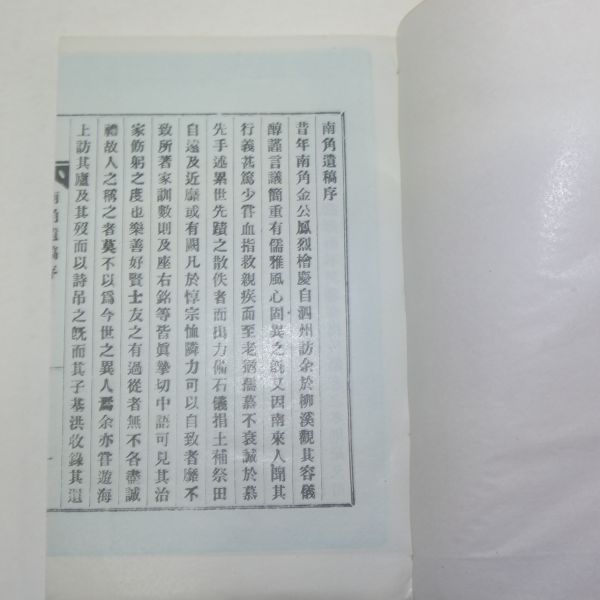 南角遺稿序
昔年南角金公鳳烈檜慶自泗州訪余於柳溪觀其容儀
醇謹言議簡重有儒雅風心固異之旣又因南來人聞其
行義甚篤少甞血指救親疾而至老猶孺慕不衰誠於慕
先手述累世先蹟之散佚者而出力備石儀捐土補祭田
自遠及近靡或有闕凡於惇宗恤隣力可以自致者靡不
致所著家訓數則及座右銘等皆眞摯切中語可見其治
家飭躬之度也樂善好賢士友之有過從者無不各盡誠
禮故人之稱之者莫不以爲今世之異人焉余亦甞遊海
上訪其廬及其歿而以詩吊之旣而其子基洪收錄其遺
南角遺稿序